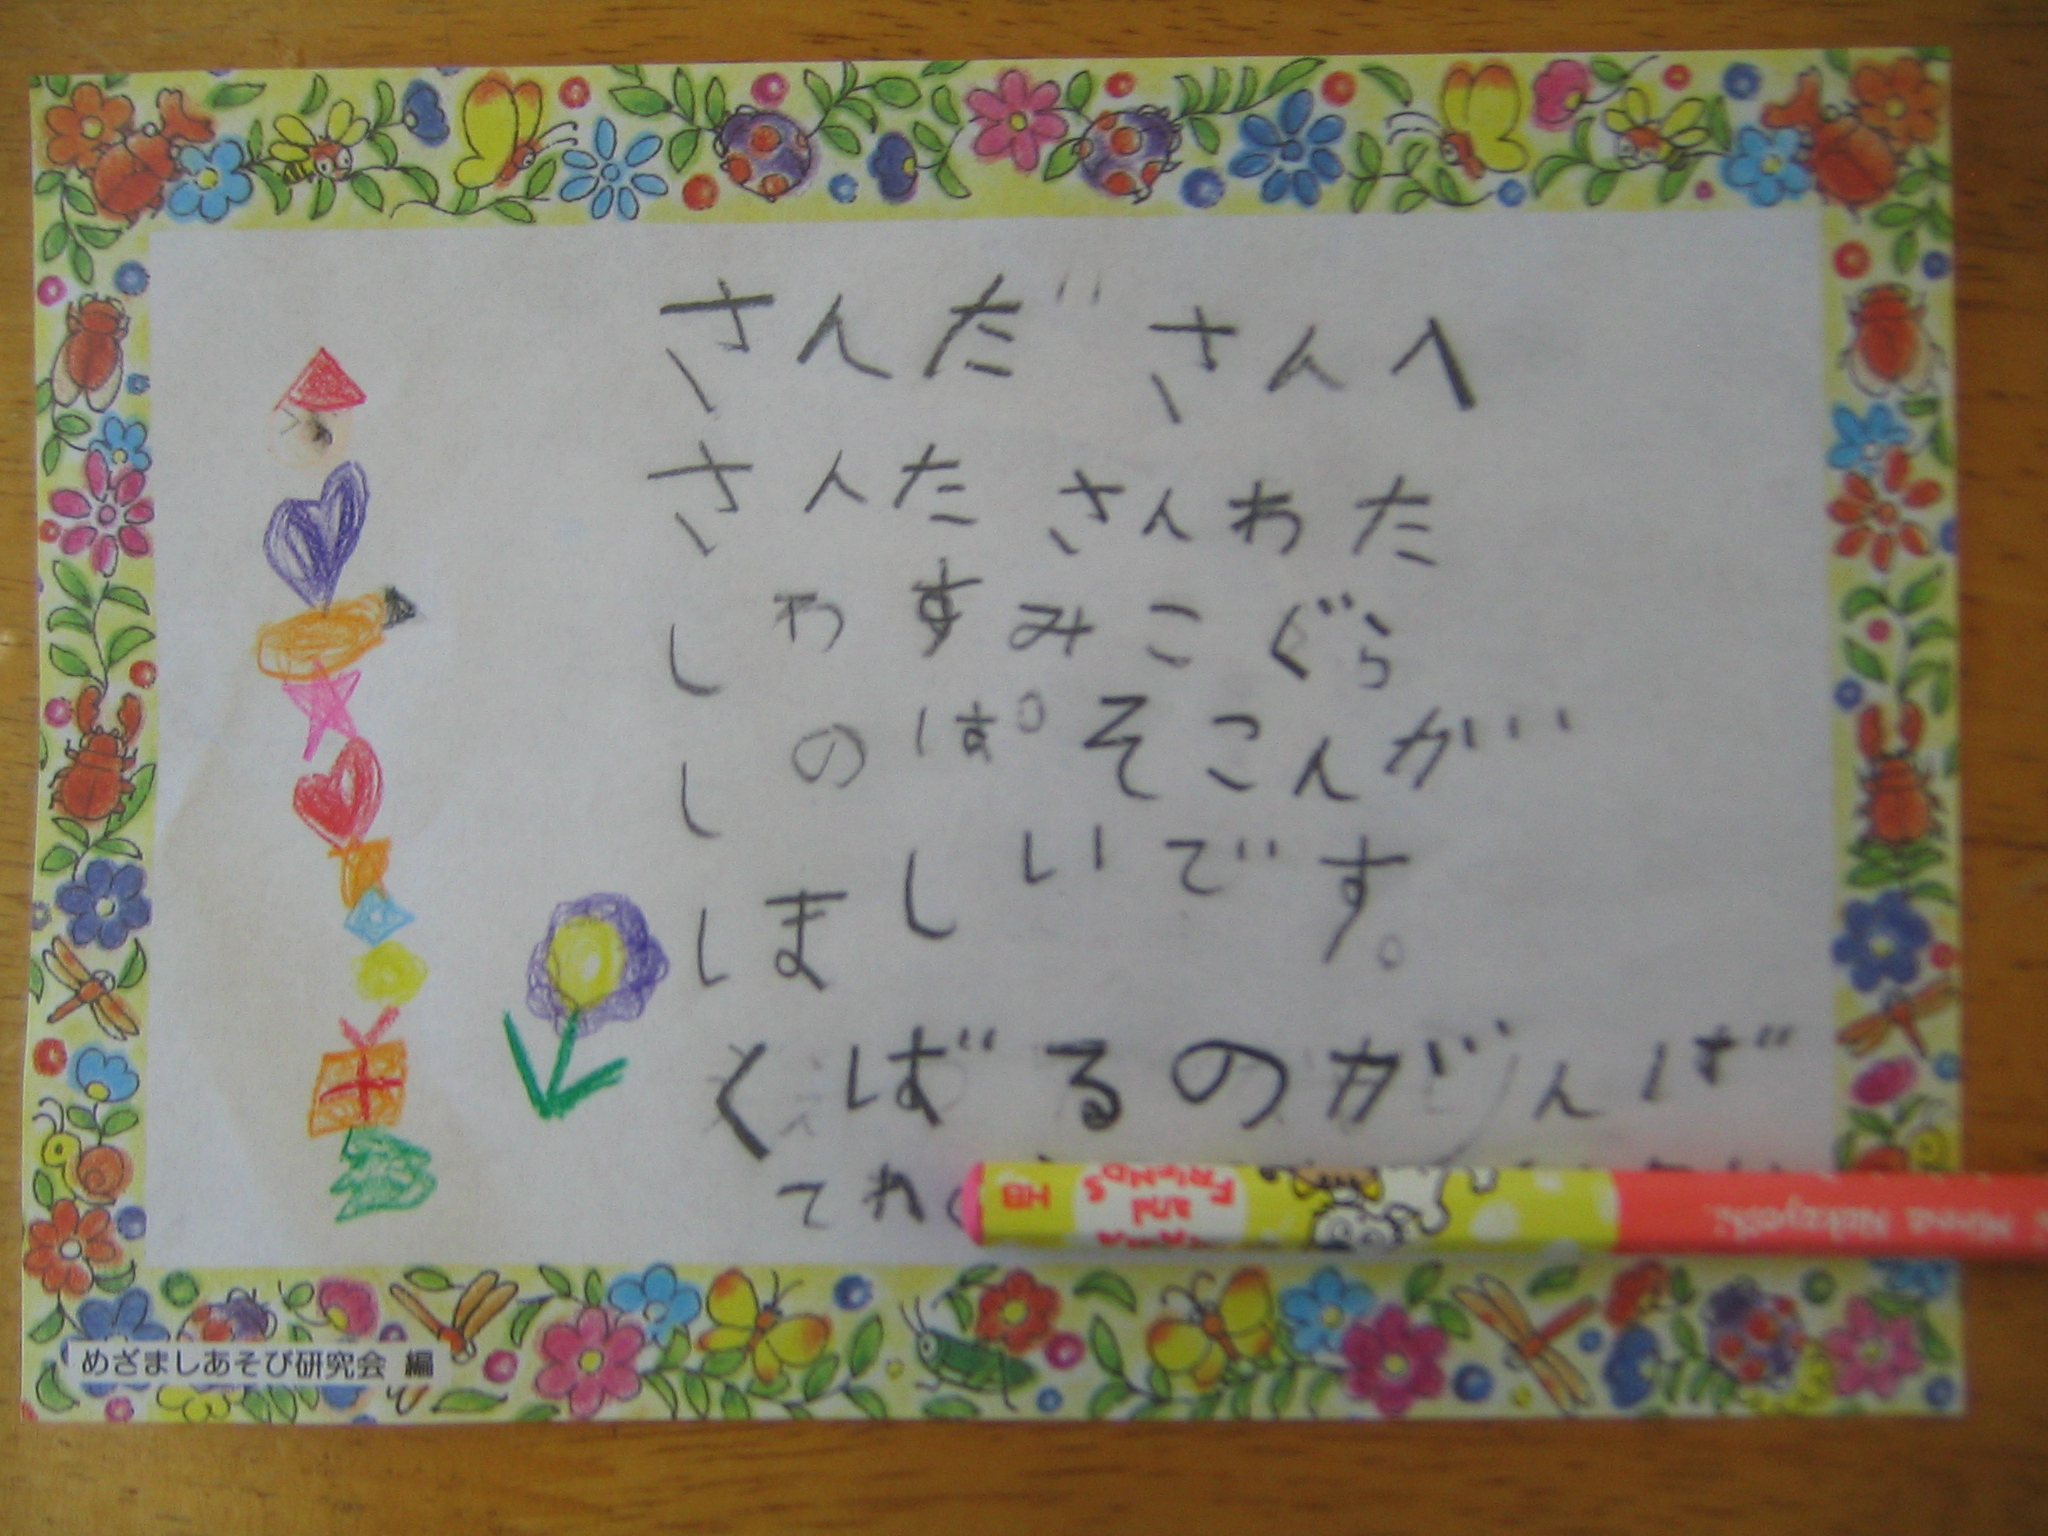 さんだ さんへ
さんた さんわた
しわすみこぐら
しのぱそこんが
ほしいです。
くばるのがんば
てね
めざましあそび研究会 編
HB
AND
FRIENDS